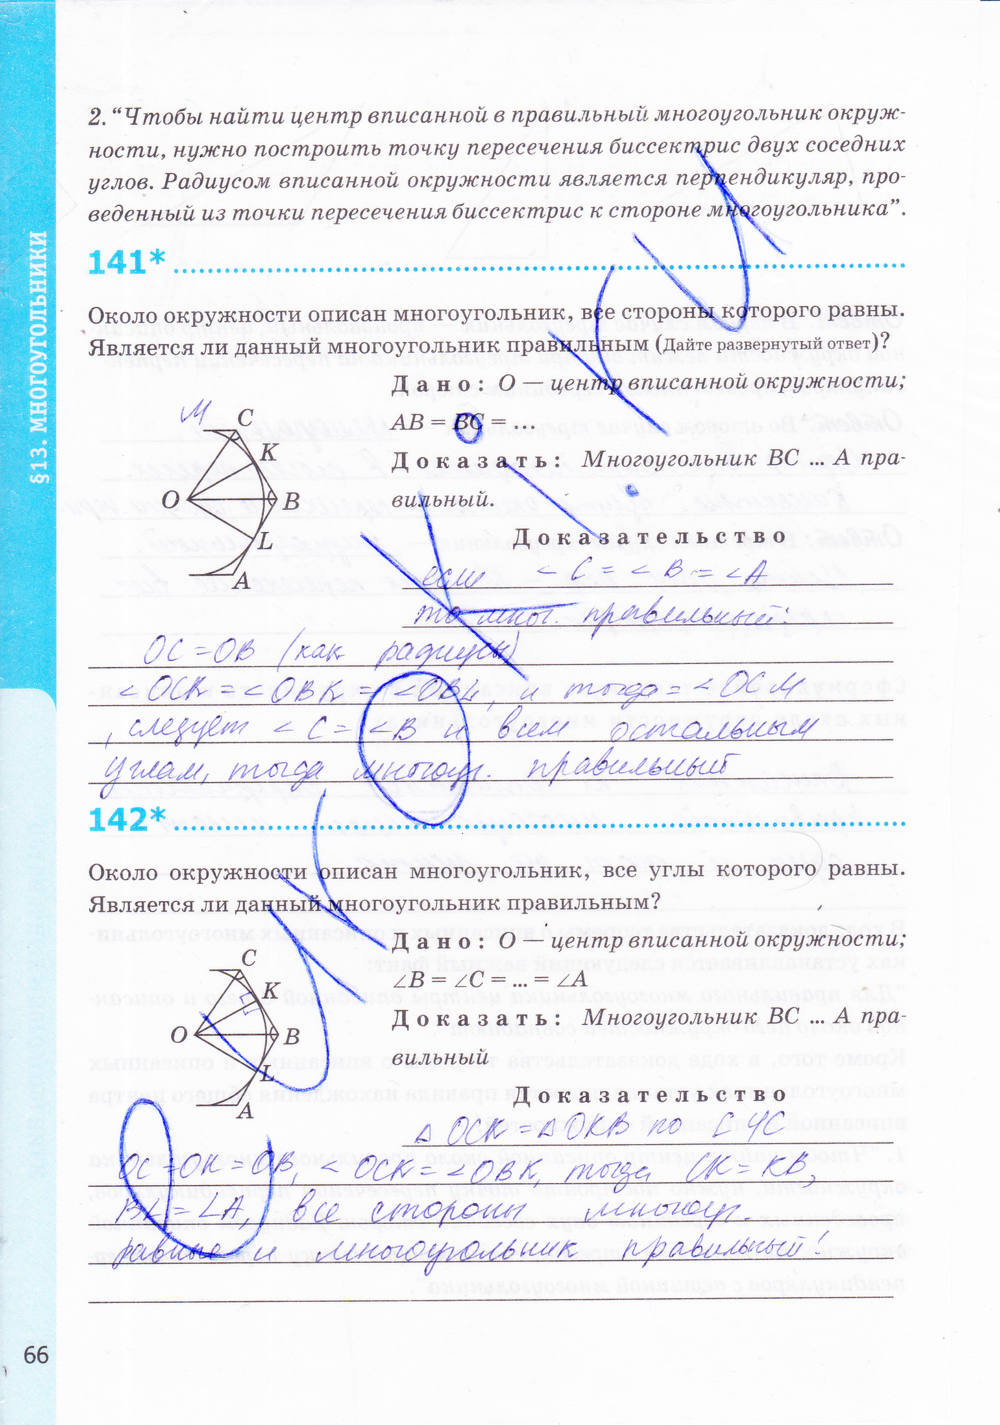 2. “Чтобы найти центр вписанной в правильный многоугольник окруж-
ности, нужно построить точку пересечения биссектрис двух соседних
углов. Радиусом вписанной окружности является перпендикуляр, про-
веденный из точки пересечения биссектрис к стороне многоугольника”.
§13. МНОГОУГОЛЬНИКИ
141*
Около окружности описан многоугольник, все стороны которого равны.
Является ли данный многоугольник правильным (Дайте развернутый ответ)?
Дано: O — центр вписанной окружности;
AB = BC = ...
Доказать: Многоугольник BC ... A пра-
вильный.
M
C
K
O
B
L
A
Доказательство
если ∠C = ∠B = ∠A
то мног. правильный:
OC = OB (как радиусы)
∠OCK = ∠OBK = ∠OBL, и тогда = ∠OCM
, следует ∠C = ∠B и всем остальным
углам, тогда многоуг. правильный
142*
Около окружности описан многоугольник, все углы которого равны.
Является ли данный многоугольник правильным?
Дано: O — центр вписанной окружности;
∠B = ∠C = ... = ∠A
Доказать: Многоугольник BC ... A пра-
вильный
C
K
O
B
L
A
Доказательство
△ OCK = △ OKB по
OC = OK = OB, ∠OCK = ∠OBK, тогда CK = KB,
= ∠A, все стороны многоуг.
равные и многоугольник правильный!
66